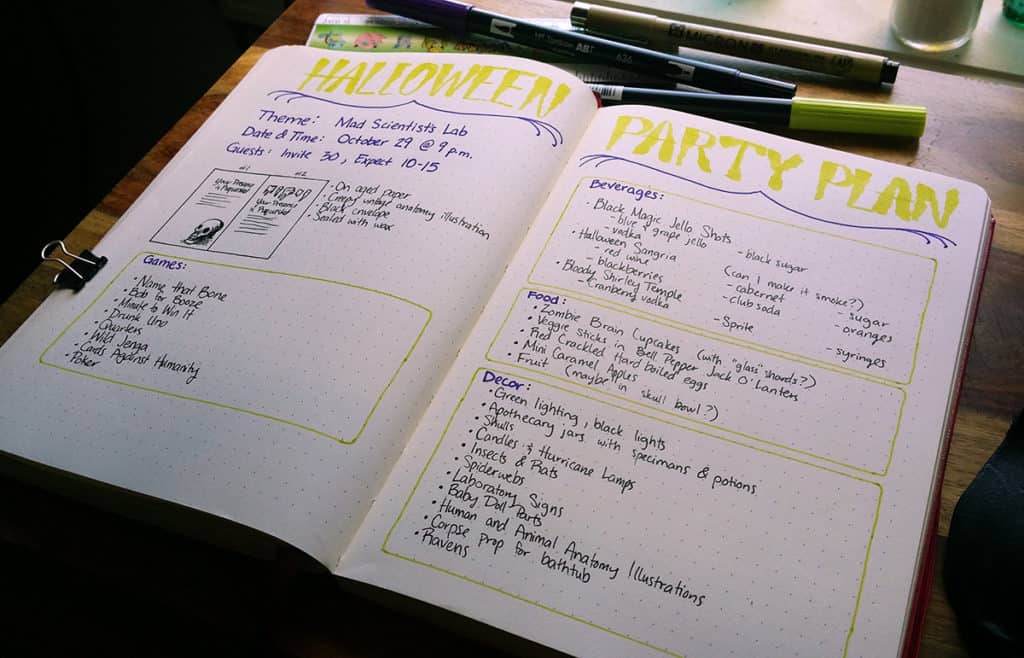 HALLOWEEN
Theme: Mad Scientist's Lab
Date & Time: October 29 @ 9 p.m.
Guests: Invite 30, Expect 10-15
#1
#2
Your Presence
is Requested
Your Presence
is Requested
• On aged paper
• Creepy vintage anatomy illustration
• Black envelope
• Sealed with wax
Games:
• Name that Bone
• Bob for Booze
• Minute to Win It
• Drunk Uno
• Quarters
• Wild Jenga
• Cards Against Humanity
• Poker
PARTY PLAN
Beverages:
• Black Magic Jello Shots
- blue & grape jello
- black sugar
- vodka
• Halloween Sangria (can I make it smoke?)
- red wine
- cabernet
- sugar
- blackberries
- club soda
- oranges
• Bloody Shirley Temple
- Cranberry vodka
- Sprite
- syringes
Food:
• Zombie Brain Cupcakes (with "glass" shards?)
• Veggie Sticks in Bell Pepper Jack O'Lanters
• Red Crackled Hard boiled eggs
• Mini Caramel Apples
• Fruit (maybe in skull bowl?)
Decor:
• Green lighting, black lights
• Apothecary jars with specimans & potions
• Skulls
• Candles & Hurricane Lamps
• Insects & Rats
• Spiderwebs
• Laboratory Signs
• Baby Doll Parts
• Human and Animal Anatomy Illustrations
• Corpse prop for bathtub
• Ravens
ABT
636
MICRON